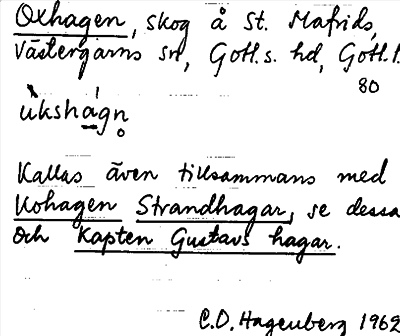 Oxhagen, skog å St. Mafrids,
Västergarns sn, Gotl. s. hd, Gotl. l.
80
ùkshágn̥
Kallas även tillsammans med
Kohagen Strandhagar, se dessa
och Kapten Gustavs hagar.
C.D. Hagenberg 1962